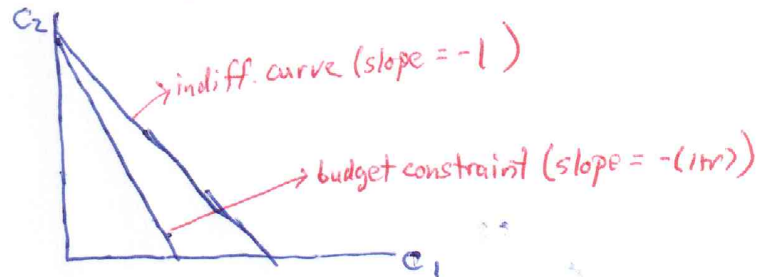 C2
indiff. curve (slope = -1)
budget constraint (slope = -(1+r))
C1